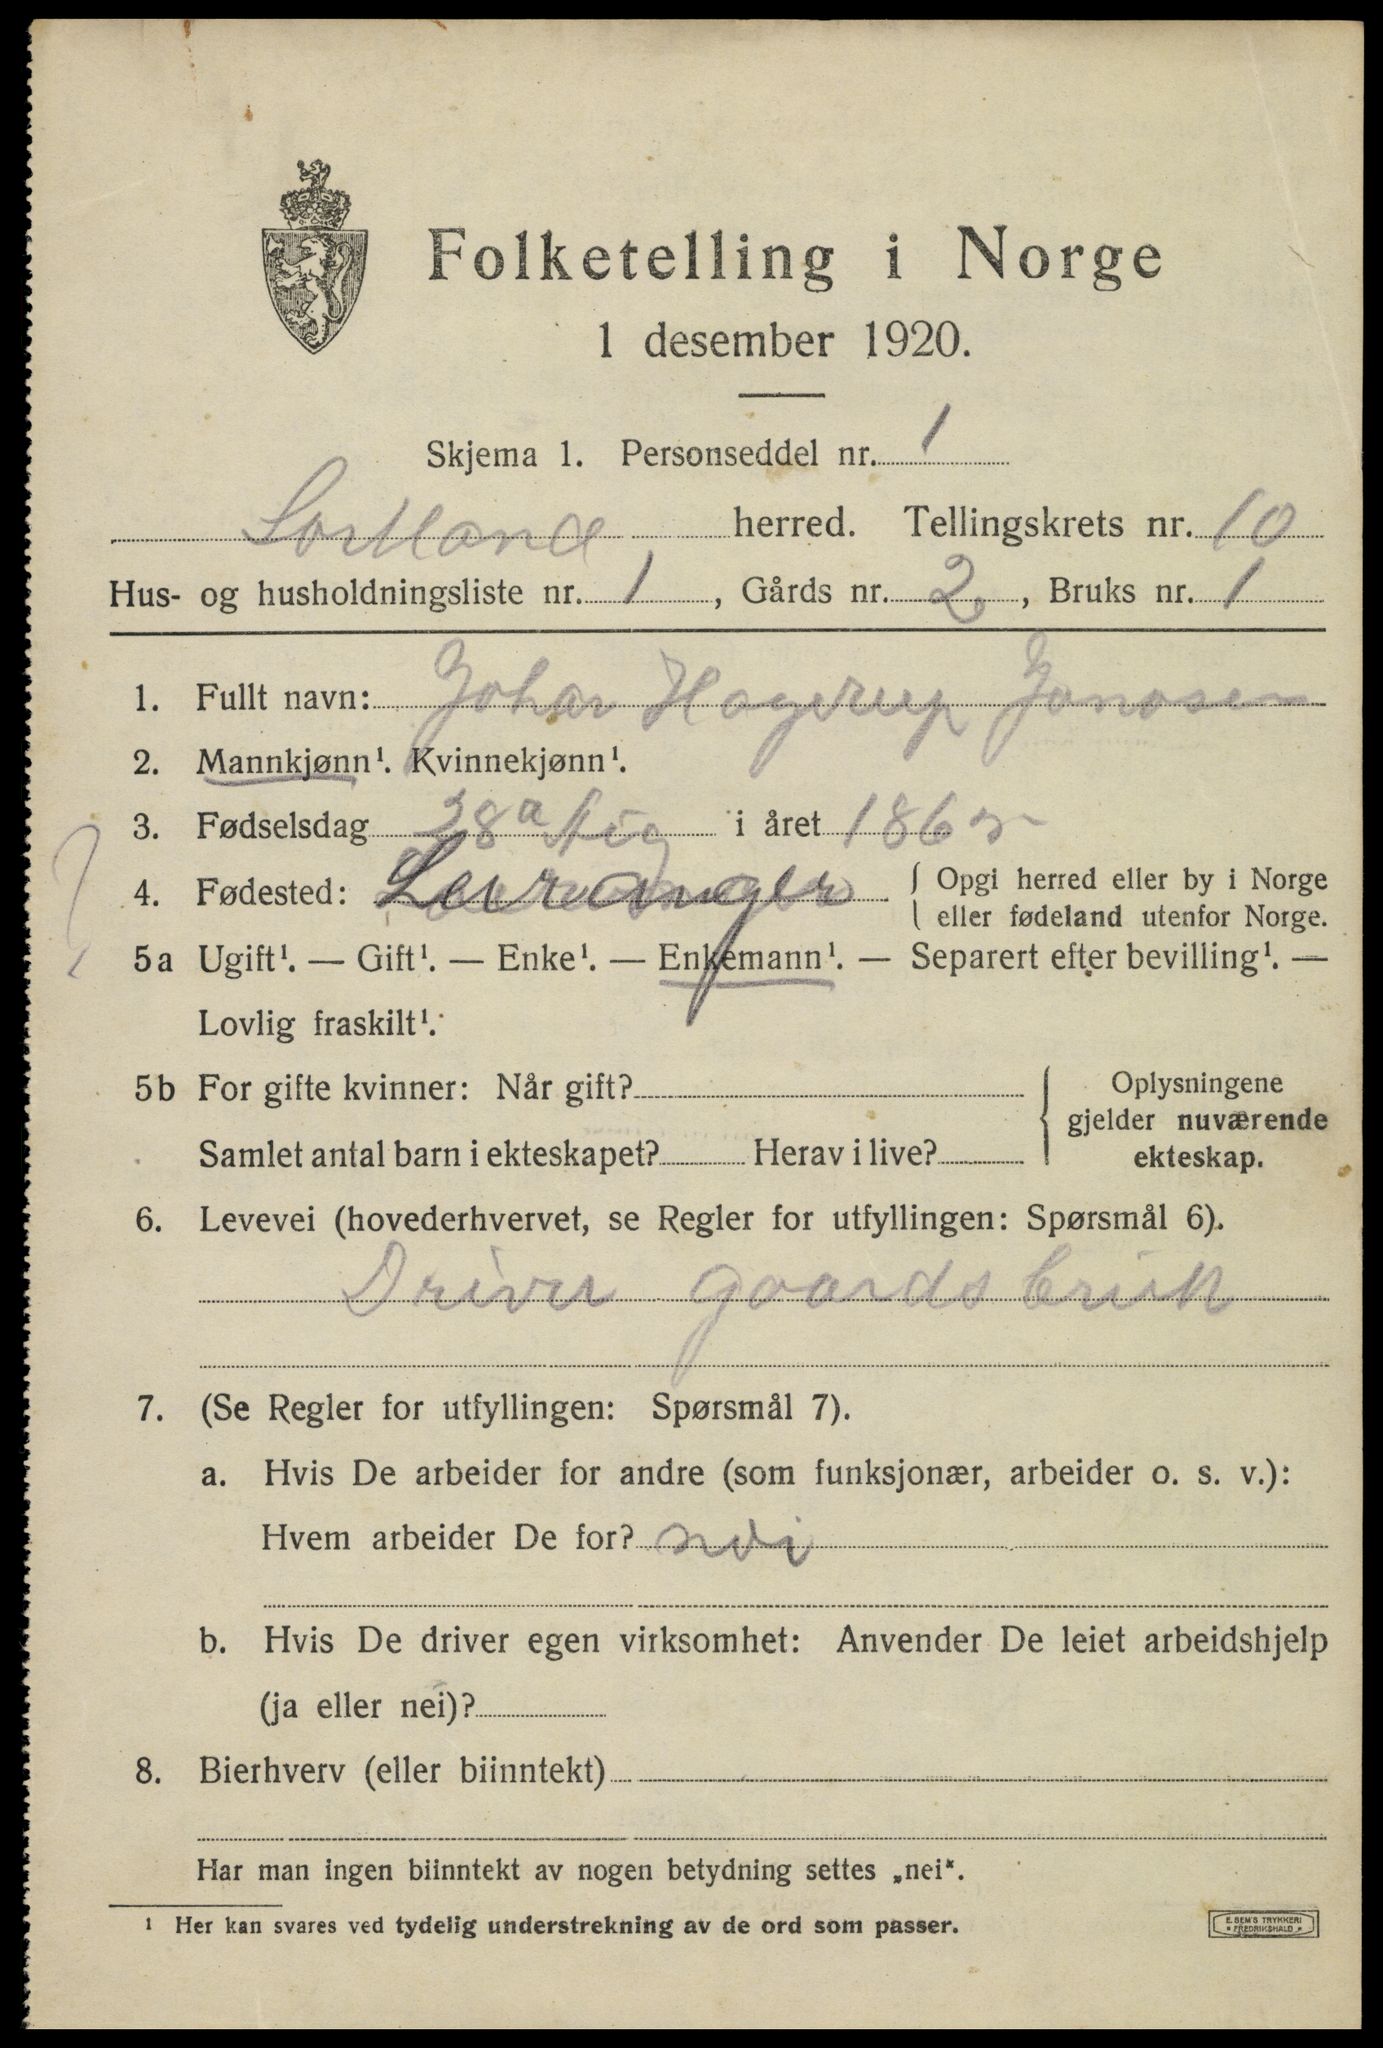 Folketelling i Norge
1 desember 1920.
Skjema 1. Personseddel nr. 1
Sortland herred. Tellingskrets nr. 10
Hus- og husholdningsliste nr. 1, Gårds nr. 2, Bruks nr. 1
1. Fullt navn: Johan Hagerup Jonasen
2. Mannkjønn¹. Kvinnekjønn¹.
3. Fødselsdag 28 i året 186
4. Fødested: Leiranger { Opgi herred eller by i Norge
eller fødeland utenfor Norge.
5a Ugift¹. — Gift¹. — Enke¹. — Enkemann¹. — Separert efter bevilling¹. —
Lovlig fraskilt¹.
5b For gifte kvinner: Når gift? { Oplysningene
gjelder nuværende
Samlet antal barn i ekteskapet? Herav i live? ekteskap.
6. Levevei (hovederhvervet, se Regler for utfyllingen: Spørsmål 6).
Driver gaardsbruk
7. (Se Regler for utfyllingen: Spørsmål 7).
a. Hvis De arbeider for andre (som funksjonær, arbeider o. s. v.):
Hvem arbeider De for? nei
b. Hvis De driver egen virksomhet: Anvender De leiet arbeidshjelp
(ja eller nei)?
8. Bierhverv (eller biinntekt)
Har man ingen biinntekt av nogen betydning settes „nei".
¹ Her kan svares ved tydelig understrekning av de ord som passer.
E. SEM'S TRYKKERI
FREDRIKSHALD